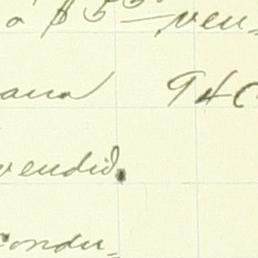 a $55 — ven-
ana 94C
vendid.
condu-